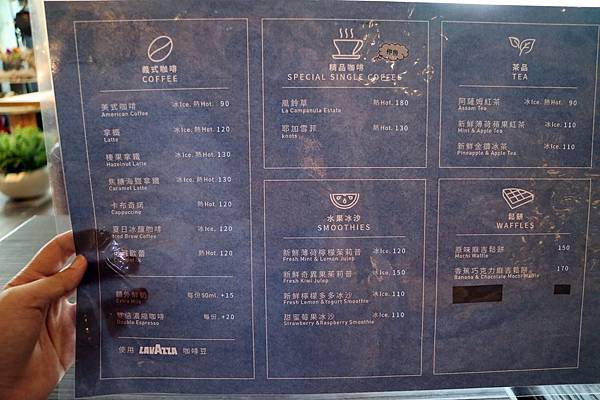 義式咖啡
COFFEE
美式咖啡 冰Ice. 熱Hot. 90
American Coffee
拿鐵 冰Ice. 熱Hot. 120
Latte
榛果拿鐵 冰Ice. 熱Hot. 130
Hazelnut Latte
焦糖海鹽拿鐵 冰Ice. 熱Hot. 130
Caramel Latte
卡布奇諾 熱Hot. 120
Cappuccing
夏日冰釀咖啡 冰Ice. 120
Iced Brew Coffee
歐蕾 熱Hot. 120
額外鮮奶 每份50ml. +15
Extra Milk
雙倍濃縮咖啡 每份. +20
Double Espresso
使用 LAVAZZA 咖啡豆
精品咖啡
停售
SPECIAL SINGLE COFFEE
風鈴草 熱Hot. 180
La Campanula Estate
耶加雪菲 熱Hot. 130
knots
水果冰沙
SMOOTHIES
新鮮薄荷檸檬茱莉普 冰Ice. 120
Fresh Mint & Lemon Julep
新鮮奇異果茱莉普 冰Ice. 110
Fresh Kiwi Julep
新鮮檸檬多多冰沙 冰Ice. 110
Fresh Lemon &Yogurt Smoothie
甜蜜莓果冰沙 冰Ice. 110
Strawberry &Raspberry Smoothie
茶品
TEA
阿薩姆紅茶 冰Ice. 熱Hot. 90
Assam Tea
新鮮薄荷蘋果紅茶 冰Ice. 110
Mint & Apple Tea
新鮮金鑽冰茶 冰Ice. 110
Pineapple & Apple Tea
鬆餅
WAFFLES
原味麻吉鬆餅 150
Mochi Waffle
香蕉巧克力麻吉鬆餅 170
Banana & Chocolate Mochi Waffle